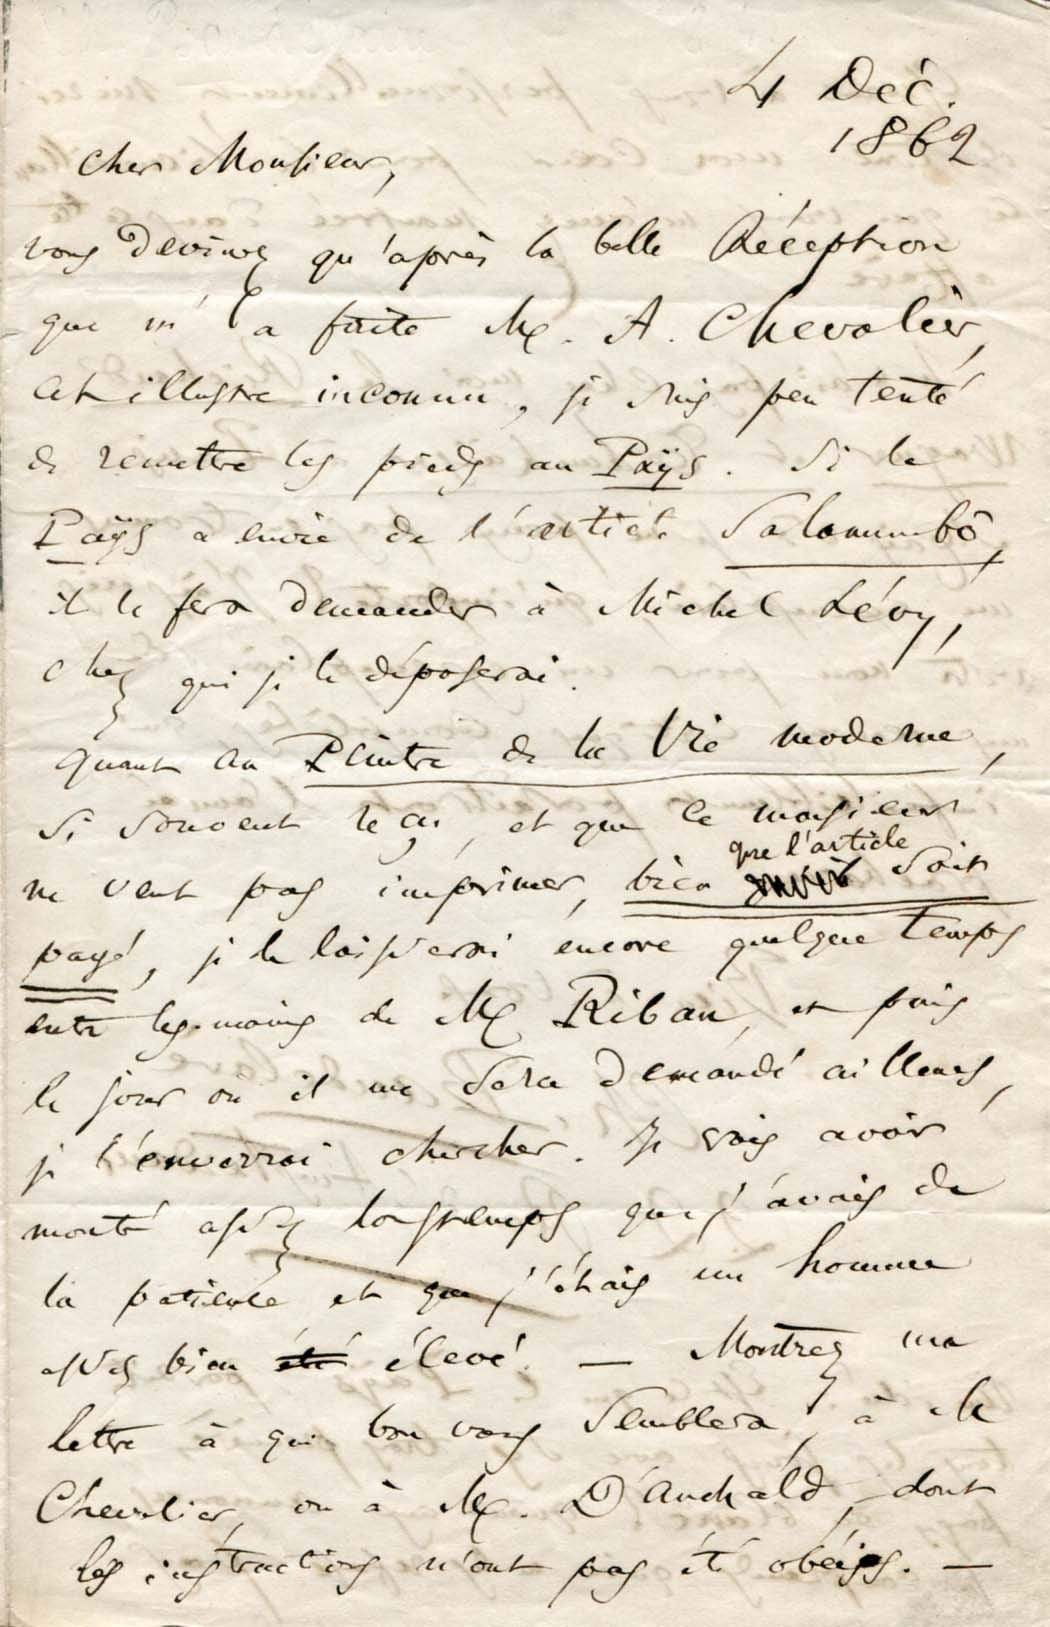 4 Déc.
1862
Cher Monsieur,
vous devinez qu'après la belle Réception
que m'a faite M. A. Chevalier,
cet illustre inconnu, je suis peu tenté
de remettre les pieds au Paÿs. Si le
Paÿs a envie de l'article Salammbô,
il le fera demander à Michel Lévy,
chez qui je le déposerai.
Quant au Peintre de la Vie moderne,
si souvent reçu, et que ce monsieur
ne veut pas imprimer, bien
que l'article
soit
payé, je le laisserai encore quelque temps
entre les mains de M. Riban, et puis
le jour où il me sera demandé ailleurs,
je l'enverrai chercher. Je crois avoir
montré assez longtemps que j'avais de
la patience et que j'étais un homme
assez bien été élevé. — Montrez ma
lettre à qui bon vous semblera, à M
Chevalier, ou à M. D'Anchald, dont
les instructions n'ont pas été obéies. —